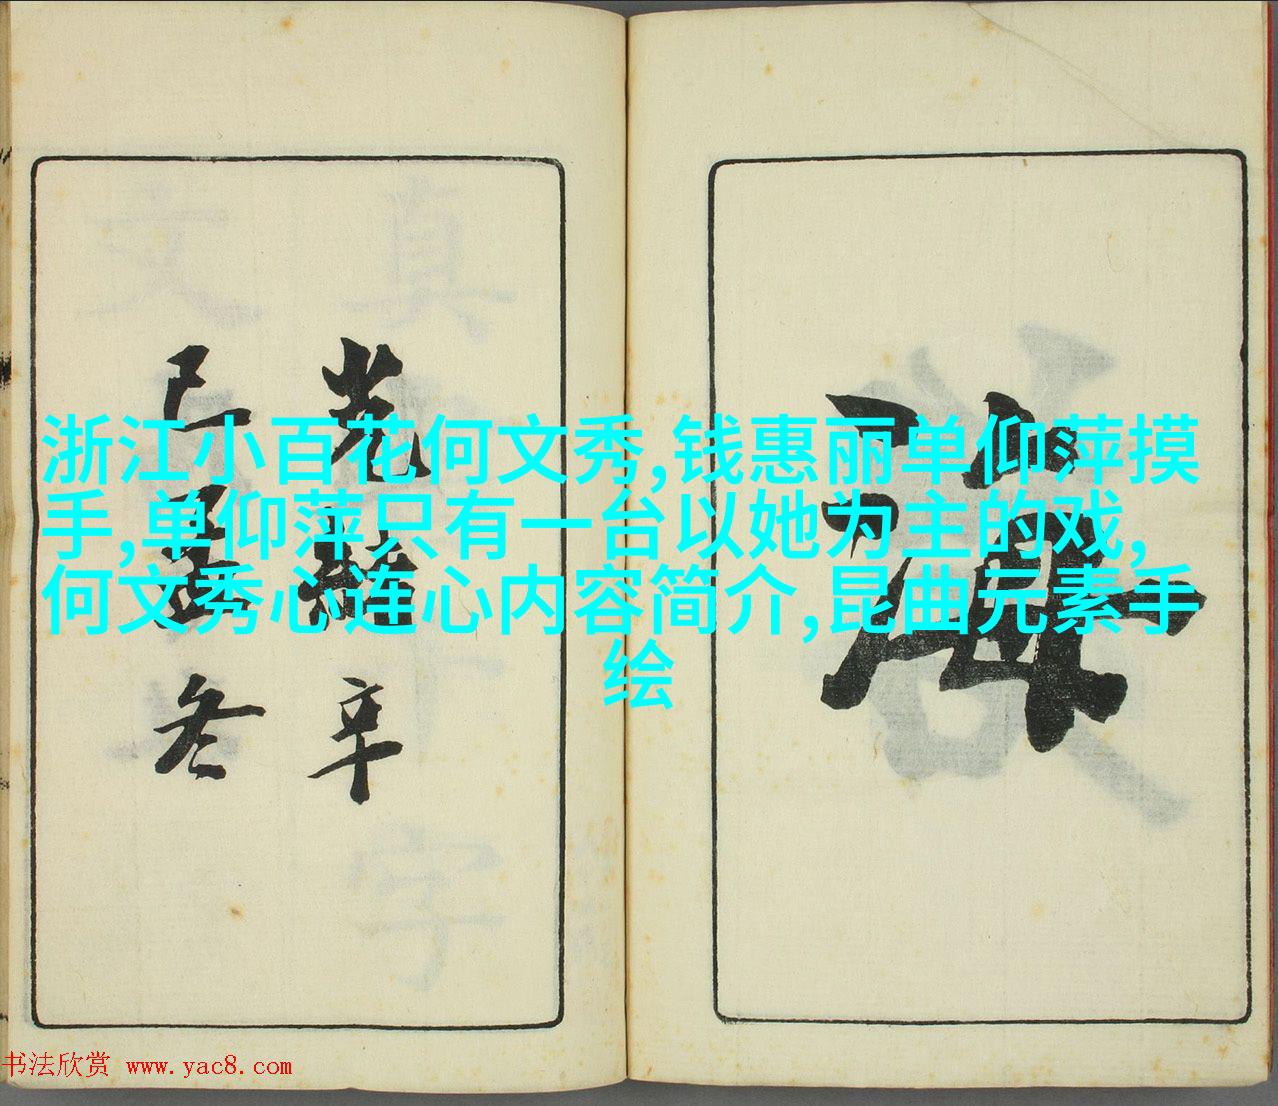 浙江小百花何文秀,钱惠丽单仰萍摸
手,单仰萍只有一台以她为主的戏,
何文秀心连心内容简介,昆曲元素手
绘
海
光緒辛
巳冬
书法欣赏 www.yac8.com